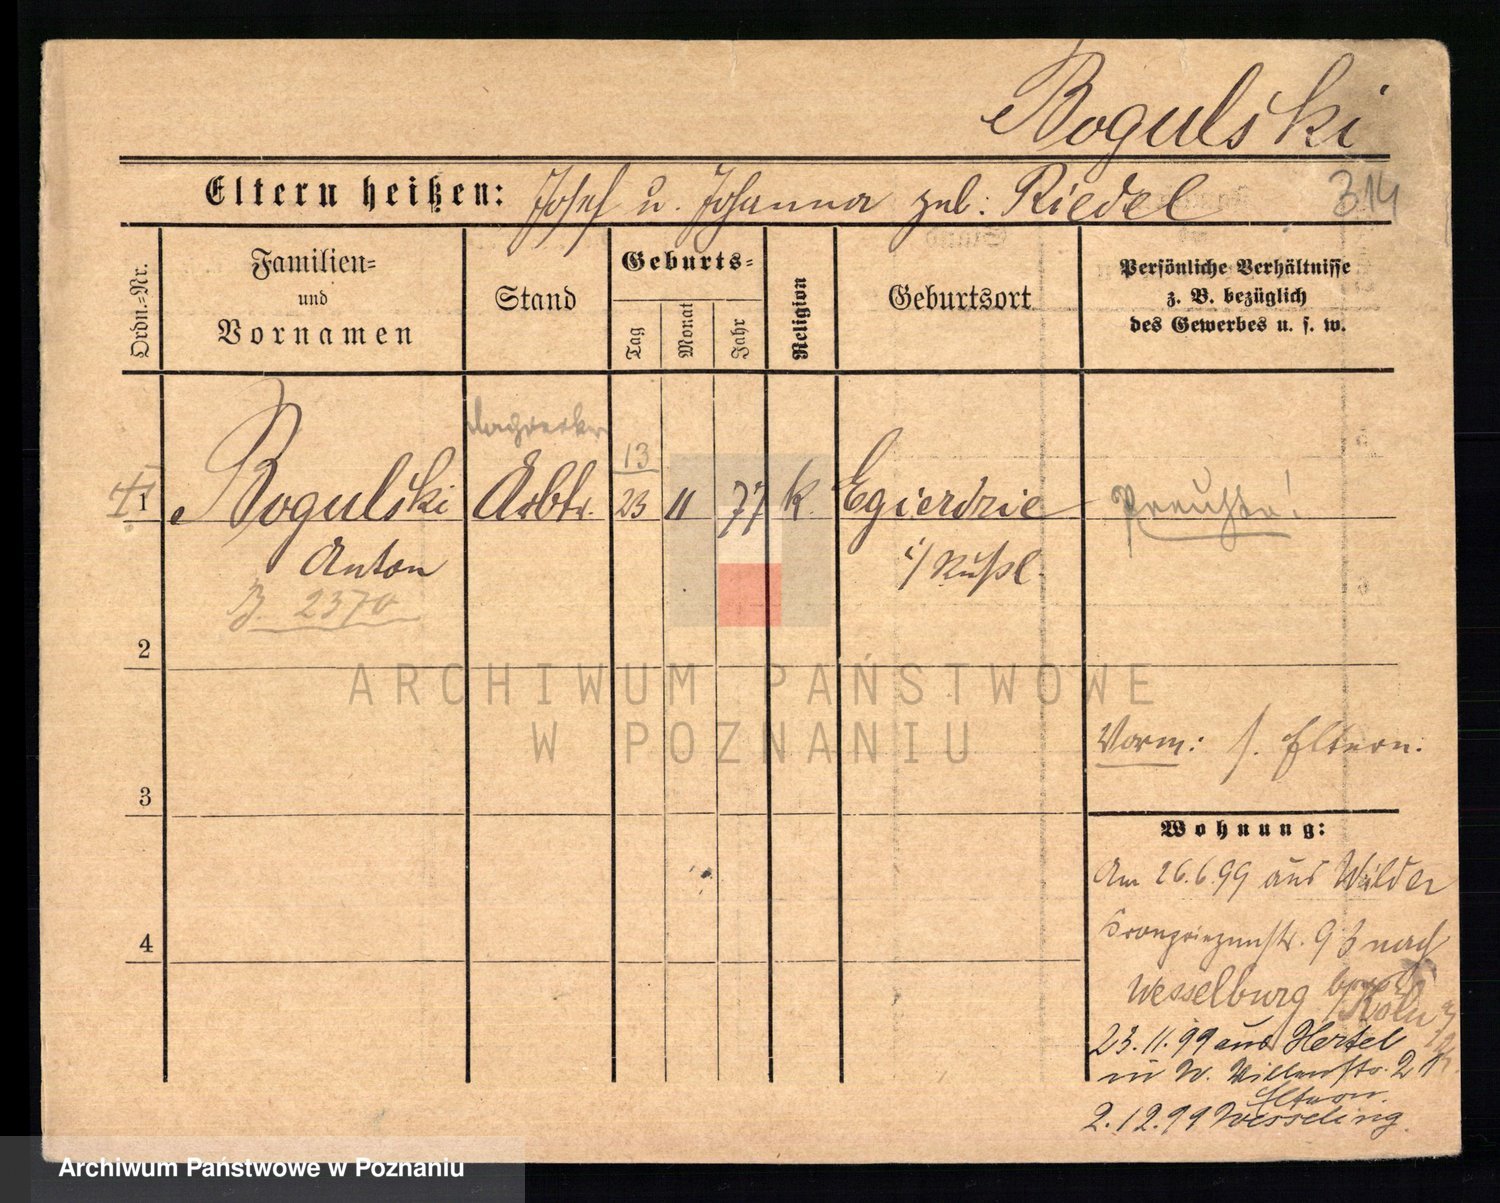 Bogulski
Eltern heißen: Josef u. Johanna geb. Riedel
314
Ordn.=Nr.
Familien=
und
Vornamen
Stand
Geburts=
Tag
Monat
Jahr
Religion
Geburtsort
Persönliche Verhältnisse
z. B. bezüglich
des Gewerbes u. s. w.
13
1 Bogulski Arbtr. 23 11 77 k. Egierdrie
Anton
i/ Rußl.
Preuße!
B. 2370
2
Vorm: s. Eltern.
3
Wohnung:
Am 26.6.99 aus Wilda
Kronprinzenstr. 93 nach
Wesselburg Köln
23.11.99 aus Hertel
in W. 2
Eltern.
2.12.99 Wesseling
4
ARCHIWUM PAŃSTWOWE
W POZNANIU
Archiwum Państwowe w Poznaniu